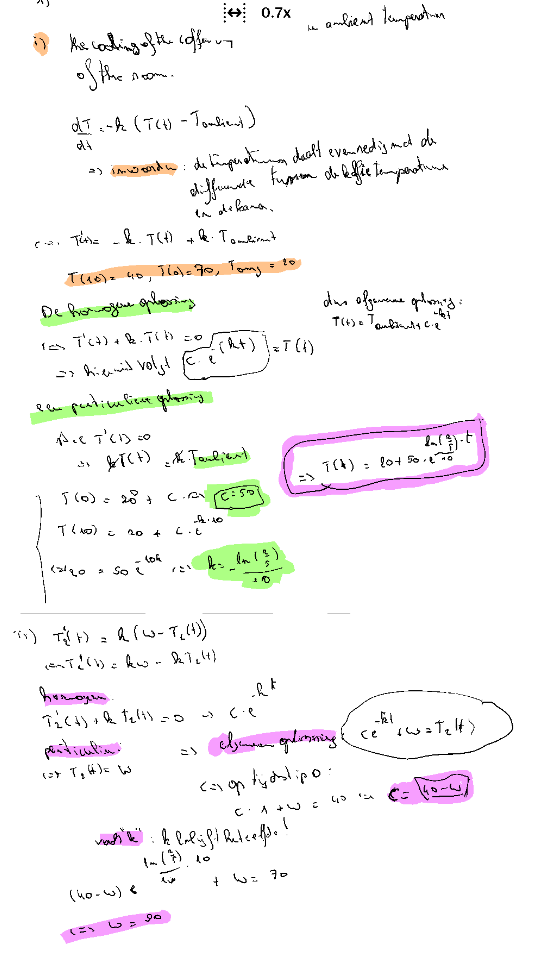 0.7x
in ambient temperature
i) the cooling of the coffee in
of the room.
dT/dt = -k (T(t) - Tambient)
=> in woorden: de temperatuur daalt evenredig met de
differentie tussen de koffie temperatuur
en de kamer.
<=> T'(t) = -k · T(t) + k · Tambient
T(10) = 40, T(0) = 70, Tomg = 20
De homogene oplossing
<=> T'(t) + k · T(t) = 0
=> hieruit volgt c · e^(kt) = T(t)
dus algemene oplossing:
T(t) = Tambient + c · e^-kt
een particuliere oplossing
T'(t) = 0
=> kT(t) = k Tambient
T(0) = 20 + c · => c = 50
T(10) = 20 + c · e^-k·10
<=> 20 = 50 e^-10k <=> k = -ln(2/5)/10
=> T(t) = 20 + 50 · e^(ln(2/5)/10 · t)
T2'(t) = k(w - T2(t))
<=> T2'(t) = kw - kT2(t)
homogeen
T2'(t) + k T2(t) = 0 -> c · e^-kt
particulier
<=> T2(t) = w
=> algemene oplossing: ce^-kt + w = T2(t)
<=> op tijdstip 0:
c · 1 + w = 40 => c = 40-w
"k": k blijft hetzelfde!
(40-w) e^(ln(2/5)/10 · 10) + w = 70
<=> w = 90